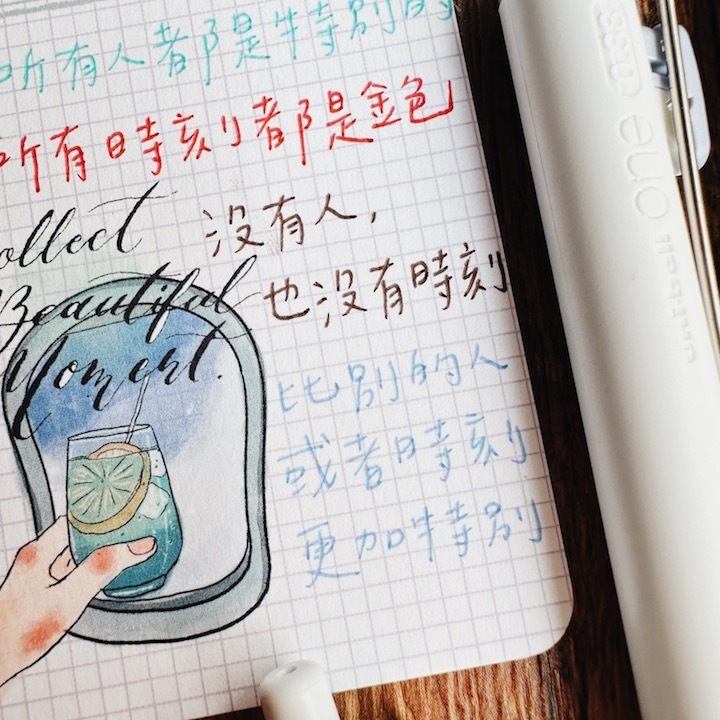 所有人都是特別的
所有時刻都是金色
ollect
Beautiful
Moment.
沒有人，
也沒有時刻
比別的人
或者時刻
更加特別
0.38
uni-ball one